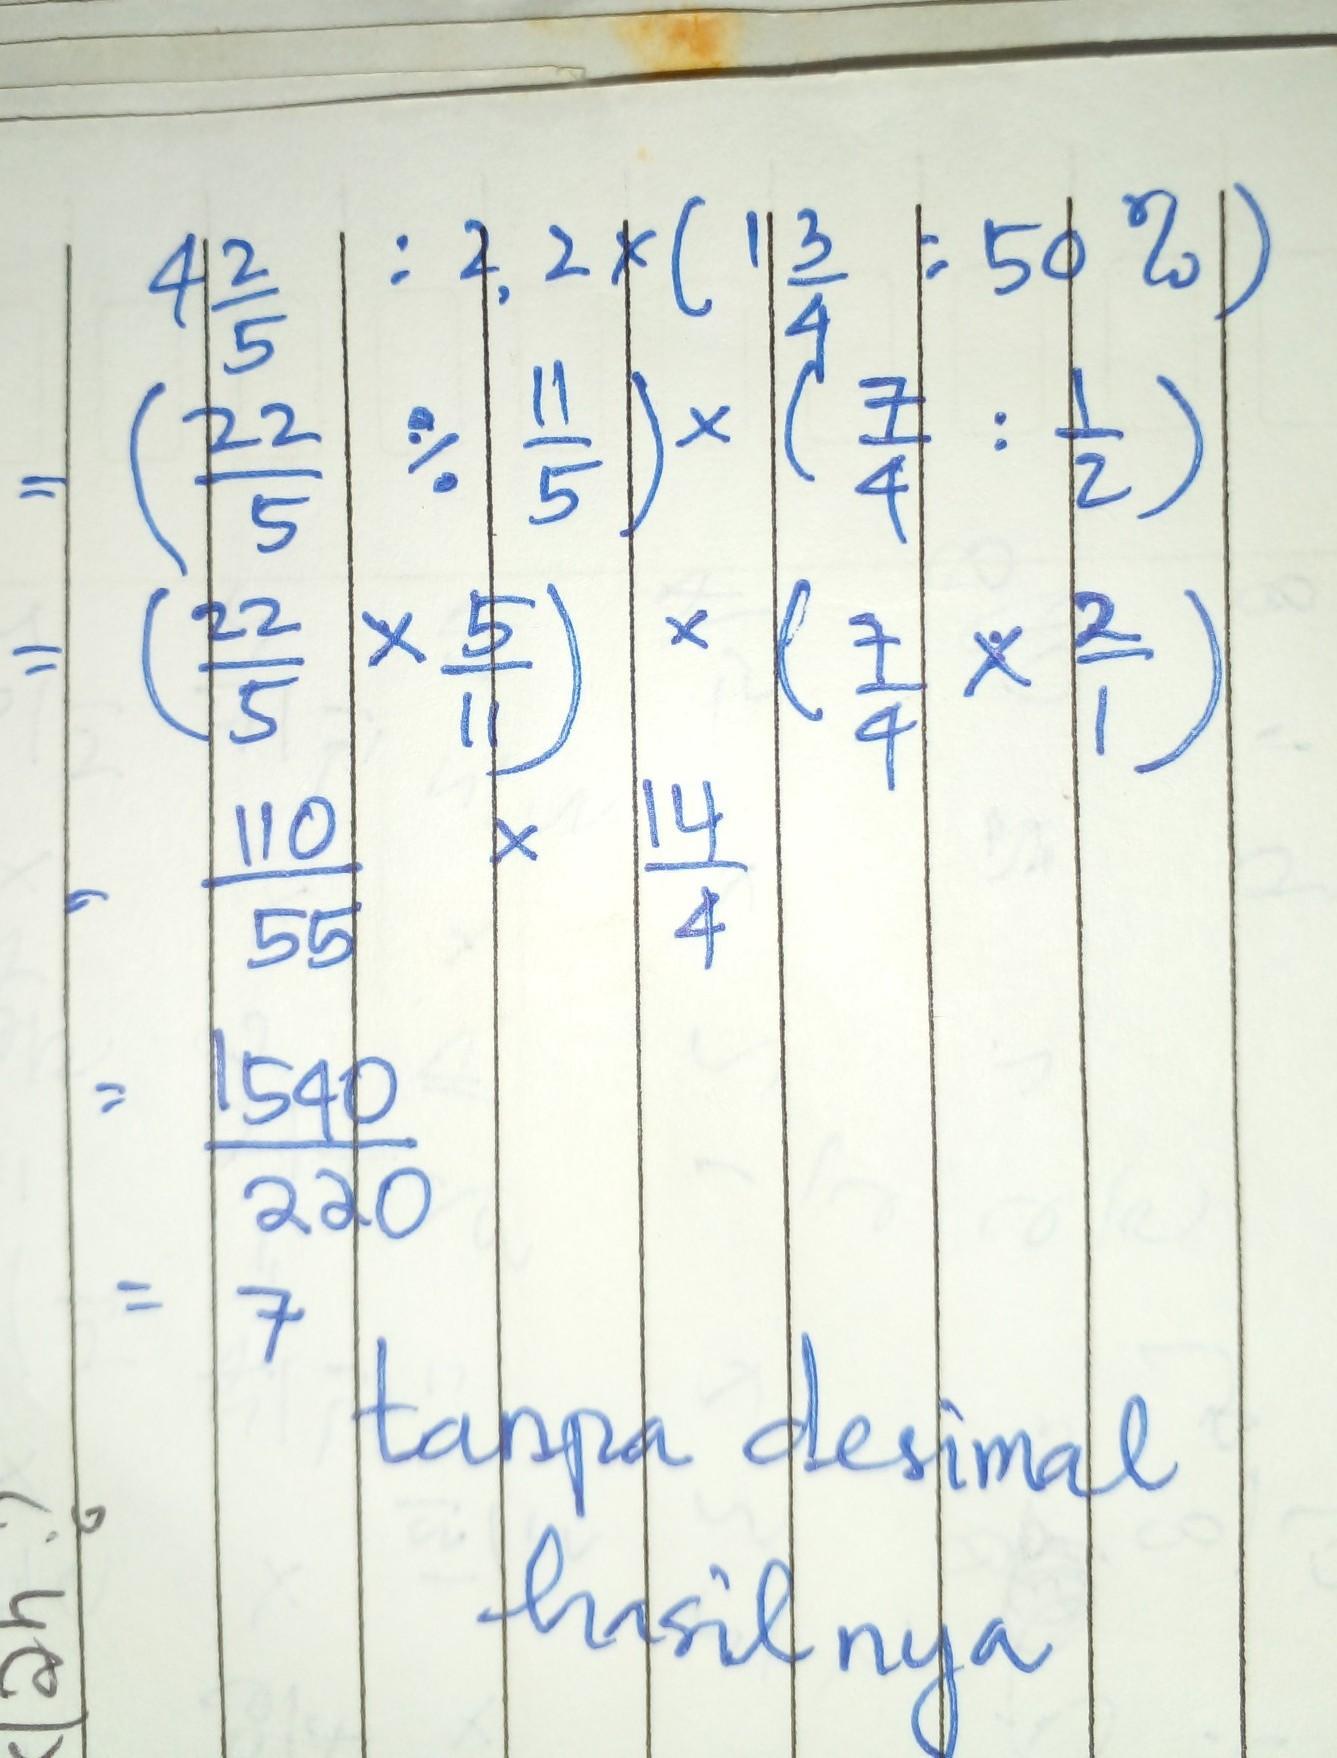 4 2/5 : 2,2 × ( 1 3/4 : 50 % )
= ( 22/5 ÷ 11/5 ) × ( 7/4 : 1/2 )
= ( 22/5 × 5/11 ) × ( 7/4 × 2/1 )
= 110/55 × 14/4
= 1540/220
= 7
tanpa desimal
hasilnya